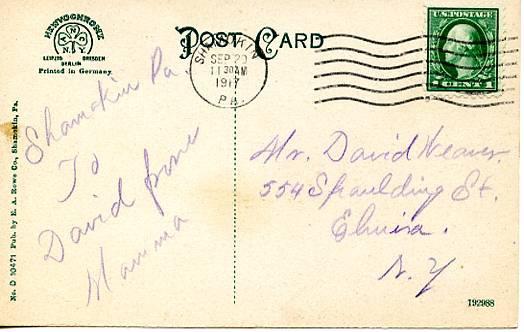 NEWVOCHROME
A N C
N.Y.
LEIPZIG DRESDEN
BERLIN
Printed in Germany.
POST CARD
SHAMOKIN
SEP 20
11 30 AM
1917
PA.
U.S. POSTAGE
1 CENT 1
Shamokin, Pa
To
David from
Mamma
Mr. David Weaver.
554 Spaulding St.
Elmira.
N. Y.
No. D 10471 Pub. by E. A. Rowe Co., Shamokin, Pa.
192988